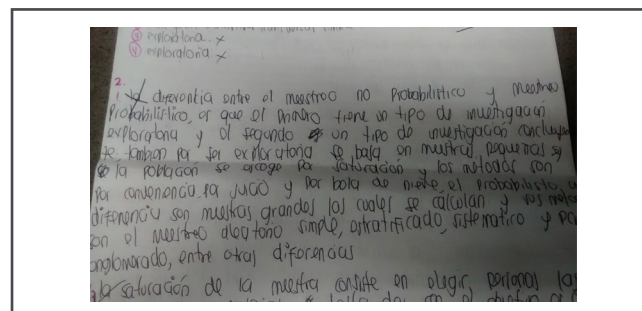 ③ exploratoria x
④ exploratoria x
2.
1. La diferentia entre el muestreo no Probabilistico y muestreo
Probabilístico, es que el primero tiene un tipo de investigación
exploratoria y el segundo un tipo de investigación concluyen
te, tambien por ser exploratoria se basa en muestras pequeñas
la población se escoge por saturación y los metodos son
Por conveniencia, por juicio y por bola de nieve, el probabilisto, a
diferencia son muestras grandes los cuales se calculan y sus
son el muestreo aleatorio simple, estratificado, sistematico y por
onglomerado, entre otras diferencias
la saturación de la muestra consiste en elegir, personas las